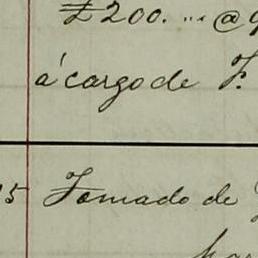 £200. ... @
á cargo de F.
5 Tomado de